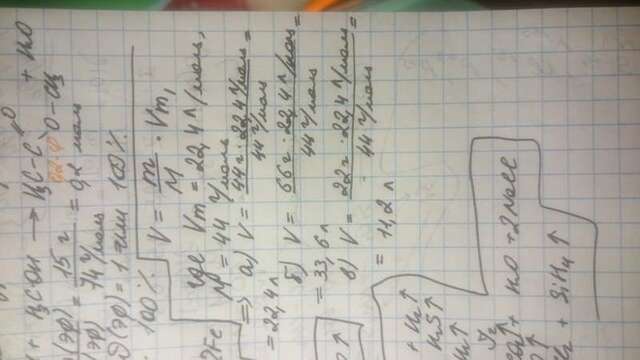 + H₃COH → H₃C-C O-CH₃ + H₂O
(эф) = 15 г / 74 г/моль = 0,2 моль
(эф) = 1 или 100%
100%
V = m/M · Vm,
где Vm = 22,4 л/моль,
M = 44 г/моль
=> а) V = 44 г · 22,4 л/моль / 44 г/моль =
= 22,4 л
б) V = 66 г · 22,4 л/моль / 44 г/моль =
= 33,6 л
в) V = 22 г · 22,4 л/моль / 44 г/моль
= 11,2 л
2Fe
+ H₂↑
H₂S↑
H₂↑
H₂O + 2
+ SiH₄↑